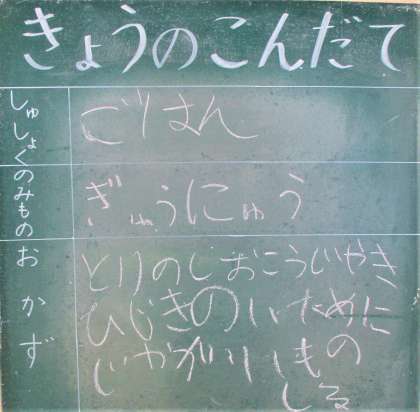 きょうのこんだて
しゅしょく
ごはん
のみもの
ぎゅうにゅう
おかず
とりのしおこうじやき
ひじきのいために
じゃがいいもの
しる